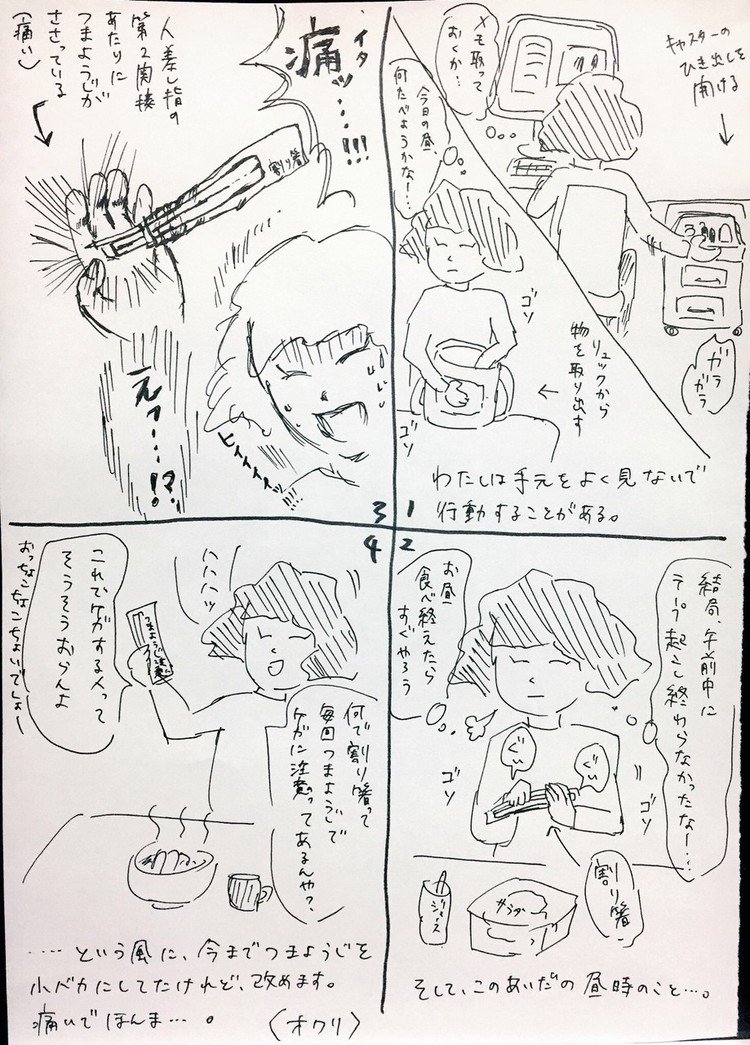 キャスターの
ひき出しを
開ける
メモ取って
おくか…
ガラ
ガラ
今日の昼
何たべようかな〜…
ゴソ
ゴソ
リュックから
物を取り出す
わたしは手元をよく見ないで
行動することがある。
1
結局、午前中に
テープ起こし終わらなかったな〜…
お昼
食べ終えたら
すぐやろう
ぐい
ぐい
ゴソ
ゴソ
割り箸
ジュース
サラダ
そして、このあいだの昼時のこと…。
2
イタ
痛ッ…!!!
割り箸
人差し指の
第2関接
あたりに
つまようじが
ささっている
(痛い)
えっ…!?
ヒイイイイッ!!!
3
4
ハハハッ
つまようじ注意
これでケガする人って
そうそうおらんよ
おっちょこちょいでしょー
何で割り箸って
毎回つまようじで
ケガに注意ってあるんや?
……という風に、今までつまようじを
小バカにしてたけれど、改めます。
痛いでほんま…。
(オワリ)